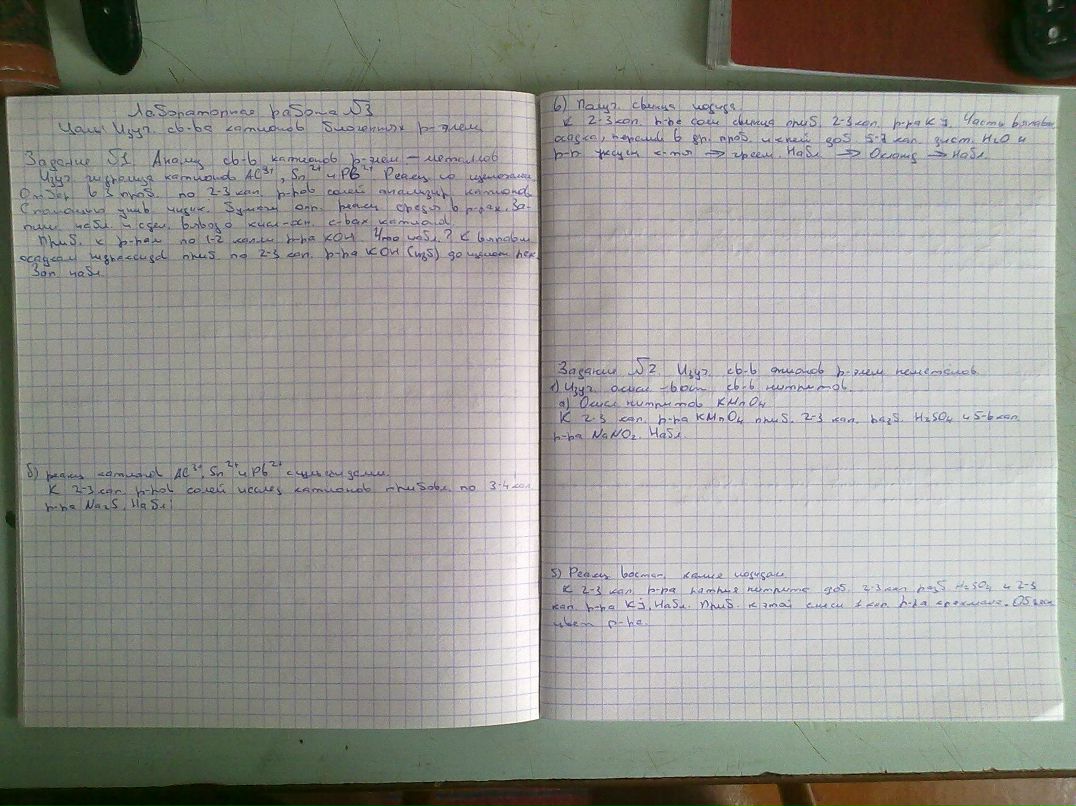 Лабораторная работа №3
Цель: Изуч. св-ва катионов биогенных р-элем.
Задание №1 Анализ св-в катионов р-элем – металлов
Изуч. гидролиза катионов Al³⁺, Sn²⁺ и Pb²⁺ Реакц со щелочами
Отбер. в 3 проб. по 2-3 кап. р-ров солей анализир катионов
С помощью унив. индик. бумаги опр. реакц среды в р-рах. За-
пис. набл. и сдел. вывод о кисл-осн. с-вах катионов
Приб. к р-рам по 1-2 капли р-ра KOH. Что набл.? К выпавш
осадкам гидроксидов приб. по 2-3 кап. р-ра KOH (изб) до
Зап. набл.
б) реакц катионов Al³⁺, Sn²⁺ и Pb²⁺ с сульфидами.
К 2-3 кап. р-ров солей исслед катионов прибавл. по 3-4 кап
р-ра Na₂S. Набл:
в) Получ. свинца иодида
К 2-3 кап. р-ра соли свинца приб. 2-3 кап. р-ра KJ. Часть выпавш
осадка, перелив в др. проб. и к ней доб 5-7 кап. дист. H₂O и
р-р уксусн к-ты → греем. Набл. → Охлажд → Набл.
Задание №2. Изуч. св-в анионов р-элем неметаллов.
1) Изуч. окисл-восст. св-в нитритов.
а) Окисл нитритов KMnO₄
К 2-3 кап. р-ра KMnO₄ приб. 2-3 кап. разб. H₂SO₄ и 5-6 кап.
р-ра NaNO₂. Набл.
б) Реакц восстан. калия иодидом.
К 2-3 кап. р-ра натрия нитрита доб. 2-3 кап разб H₂SO₄ и 2-3
кап. р-ра KJ. Набл. Приб. к этой смеси 1 кап. р-ра крахмала. Объясн
цвет р-ра.